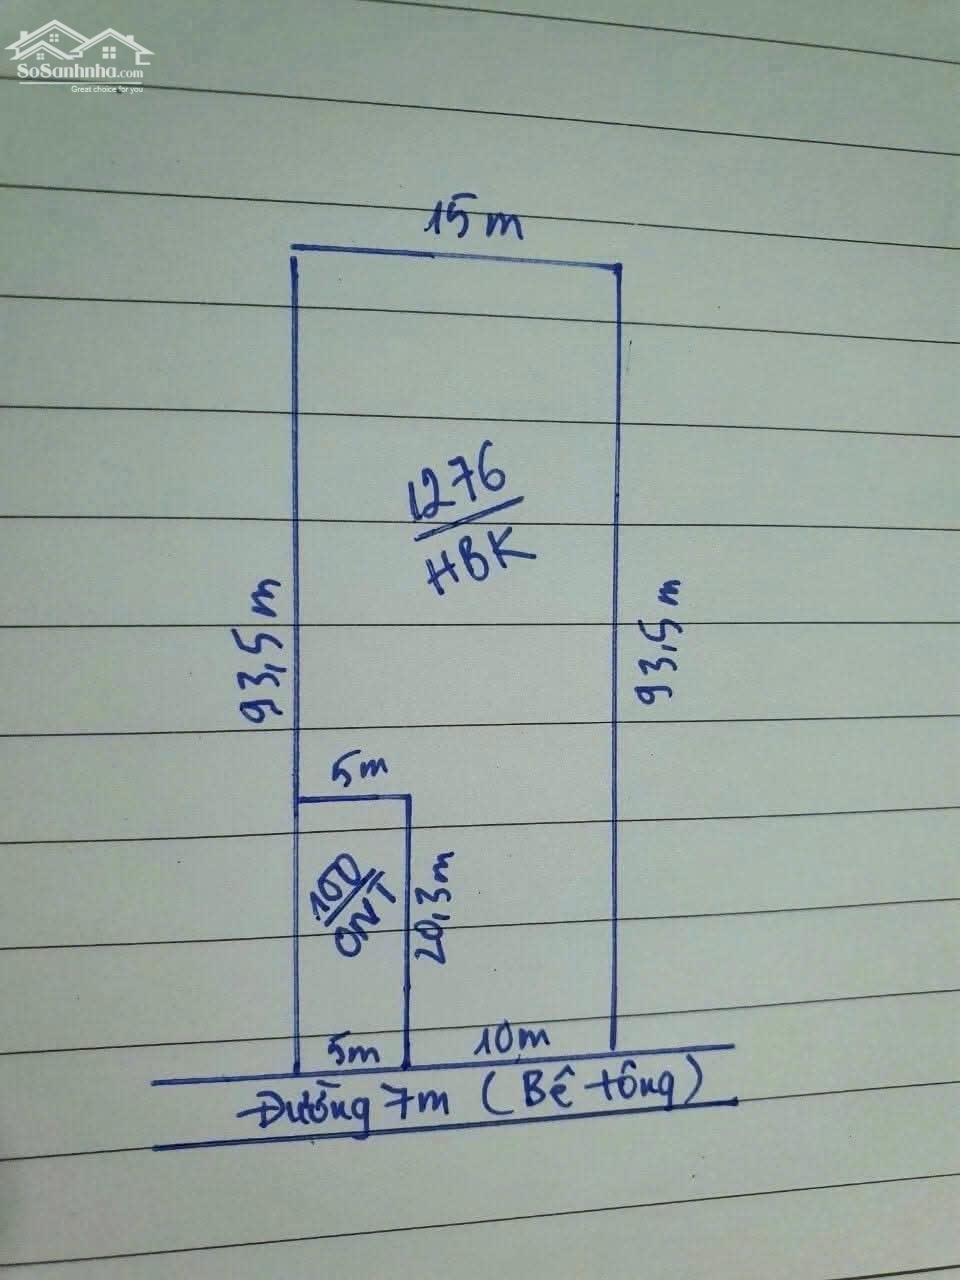 SoSanhnha.com
Great choice for you
15m
1276
HBK
93,5m
93,5m
5m
100
ONT
20,3m
5m
10m
Đường 7m (Bê tông)